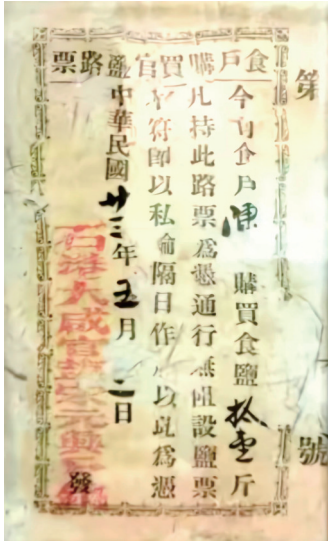 第 號
食戶購買官鹽路票
今有食戶陳 購買食鹽拾壹斤
凡持此路票為憑通行無阻設鹽票
不符即以私論隔日作 以此為憑
中華民國廿三年五月二日
石港大咸官 元興
發